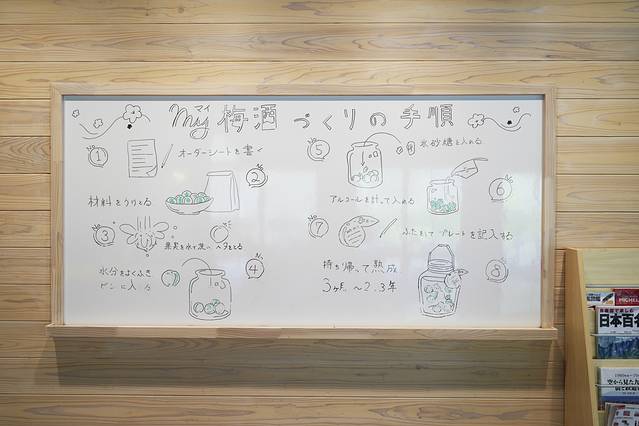 マイ
My 梅酒づくりの手順
No 1
オーダーシートを書く
No 2
材料をうけとる
No 3
果実を水で洗い ヘタをとる
No 4
水分をよくふき
ビンに入れる
No 5
氷砂糖を入れる
No 6
アルコールを計って入れる
No 7
ふたをして プレートを記入する
No 8
持ち帰って熟成
3ヶ月 〜 2、3年
日本百名
空から見た